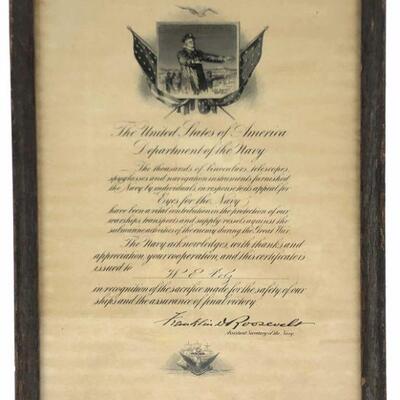 The United States of America
Department of the Navy
The thousands of binoculars, telescopes,
spyglasses and navigation instruments furnished
the Navy by individuals, in response to its appeal for
"Eyes for the Navy"
have been a vital contribution in the protection of our
warships, transports and supply vessels against the
submarine activities of the enemy during the Great War.
The Navy acknowledges, with thanks and
appreciation, your cooperation, and this certificate is
issued to
in recognition of the sacrifice made for the safety of our
ships and the assurance of final victory
Franklin D Roosevelt
Assistant Secretary of the Navy.